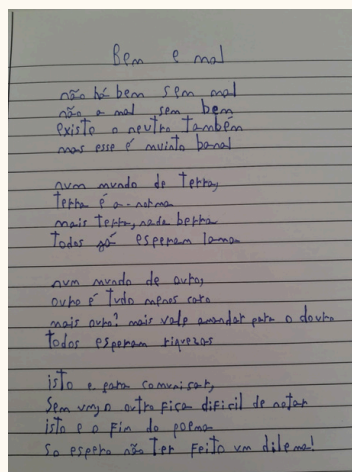 Bem e mal
não há bem sem mal
não a mal sem bem
existe o neutro também
mas esse é muinto banal
num mundo de terra,
terra é a norma
mais terra, nada berra
todos já esperam lama
num mundo de ouro,
ouro é tudo menos caro
mais ouro? mais vale amandar para o douro
todos esperam riquezas
isto e para comunicar,
Sem um, o outro fica dificil de notar
isto e o fim do poema
So espero não ter feito um dilema!